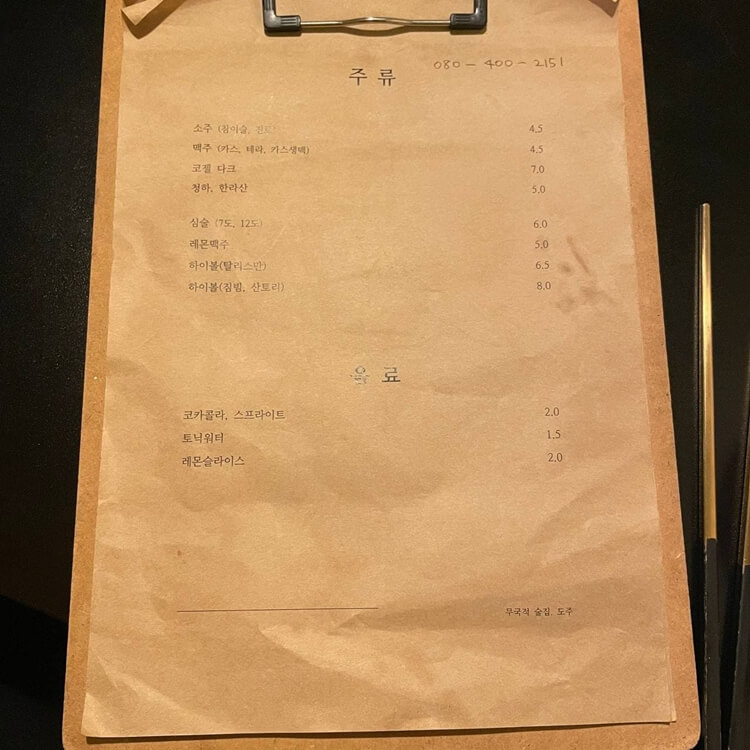 080-400-2151
주류
소주 (참이슬, 진로) 4.5
맥주 (카스, 테라, 카스생맥) 4.5
코젤 다크 7.0
청하, 한라산 5.0
심술 (7도, 12도) 6.0
레몬맥주 5.0
하이볼(탈리스만) 6.5
하이볼(짐빔, 산토리) 8.0
음료
코카콜라, 스프라이트 2.0
토닉워터 1.5
레몬슬라이스 2.0
무국적 술집. 도주